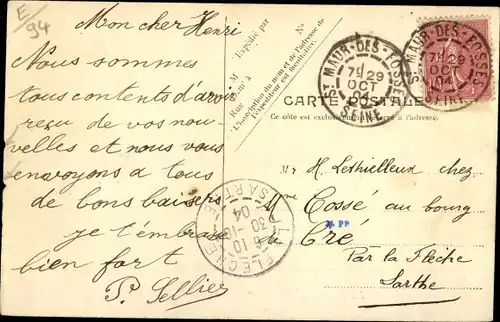 E/94
Mon cher Henri
Nous sommes
tous contents d'avoir
reçu de vos nou-
velles et nous vous
envoyons à tous
de bons baisers
je t'embrasse
bien fort
P. Sellier
Expédié par
M
Rue
à
N°
L'inscription du nom et de l'adresse de
l'expéditeur est facultative.
ST MAUR-DES-FOSSÉS
7 29
OCT
04
SEINE
ST MAUR-DES-FOSSÉS
7 29
OCT
04
SEINE
CARTE POSTALE
Ce côté est exclusivement réservé à l'adresse.
Mr H. Lethielleux chez
Mme Cossé au bourg
de Cré
PP
Par la Flèche
Sarthe
LA FLECHE
SARTHE
6 10
30 -10
04